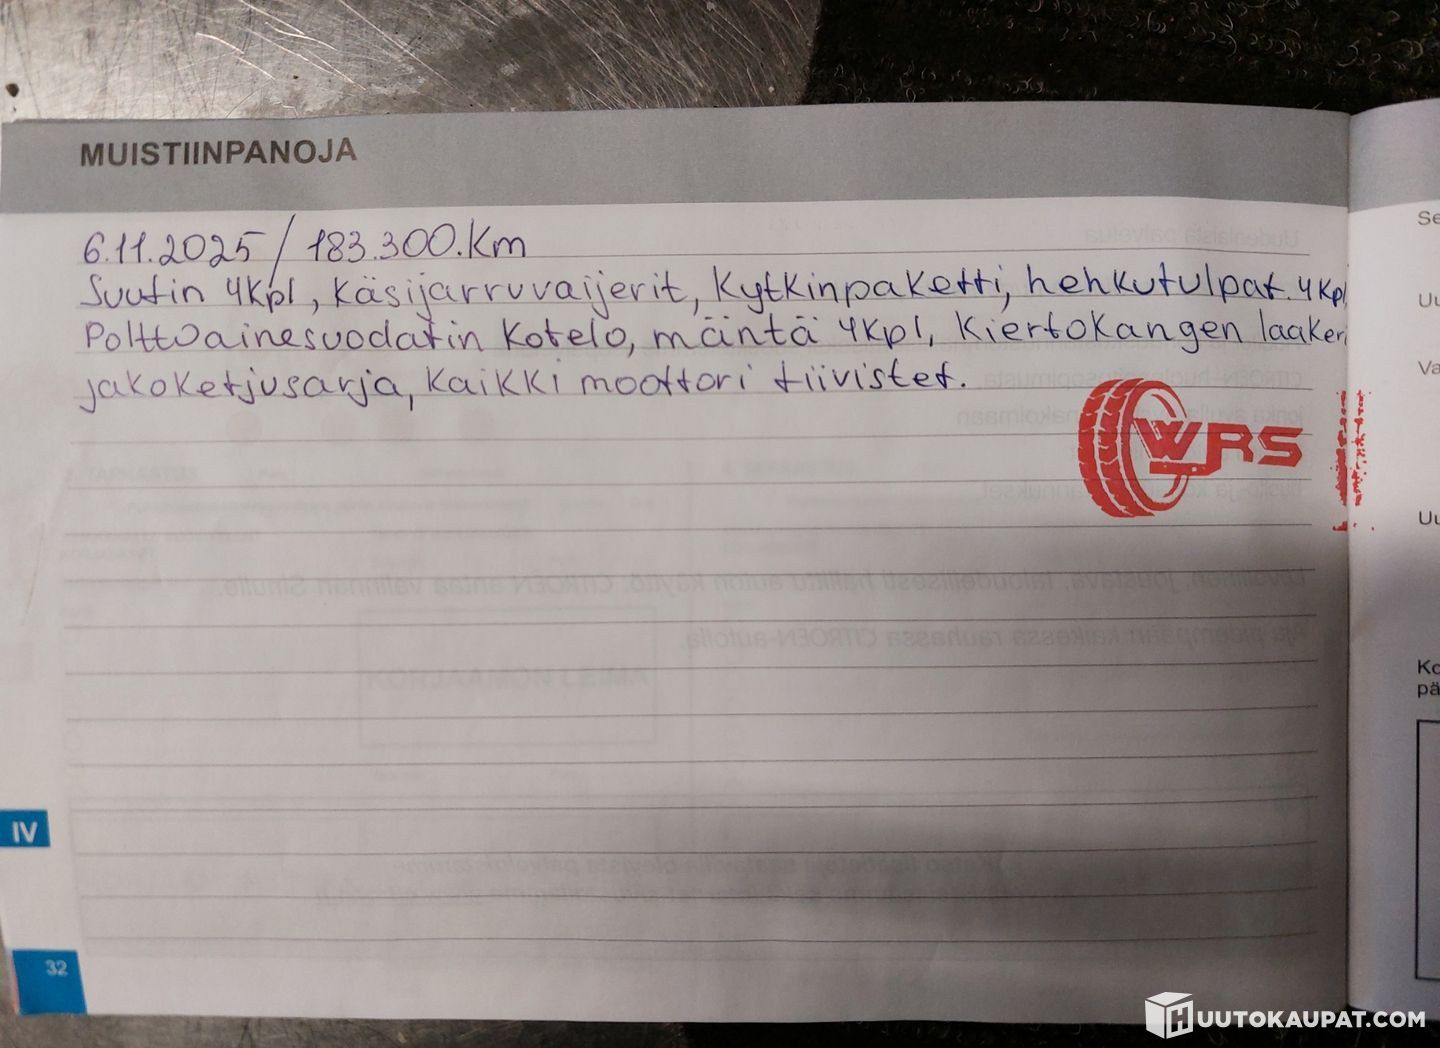 MUISTIINPANOJA
6.11.2025 / 183.300.Km
Suutin 4kpl, Käsijarruvaijerit, Kytkinpaketti, hehkutulpat. 4kpl,
Polttoainesuodatin kotelo, mäntä 4kpl, Kiertokangen laakeri
jakoketjusarja, kaikki moottori tiivistet.
WRS
IV
32
Se
Uu
Va
Uu
Ko
pä
HUUTOKAUPAT.COM